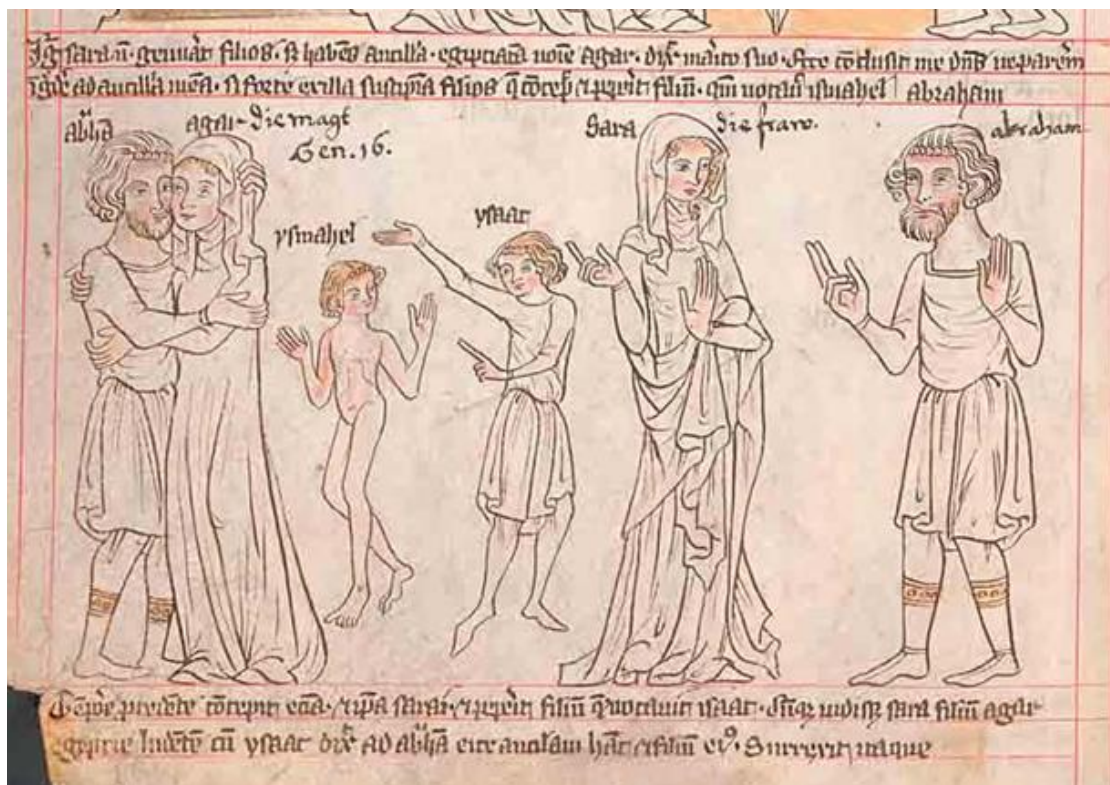 Jgͥ sara nͦ genuͣat filios · s̄ habēs ancillā · egiptiacā noīe agar · dix̄ marito suo · Ecce cōclusit me dn̄s ne parerem
īgͥdeͤ ad ancillā meā · si forte ex illa suscipiā filios q̄ cōcep̄ ⁊ pep̄it filiū · quē uocauͭ ismahel abraham
abͣhā agar · die magt Sara die fraw. abraham
Gen. 16.
ysmahel ysaac
Tēpoͤre p̄cedēte cōcepit eciā · ⁊ ip̄a sarai · ⁊ pep̄it filiū q̄ uocauit isaac · Cūqꝫ uidisꝫ sara filiū agar
egipcie ludētē cū ysaac dix̄ ad abͣhā eice ancillam hāc ⁊ filiū eiꝰ · Surrexit itaque